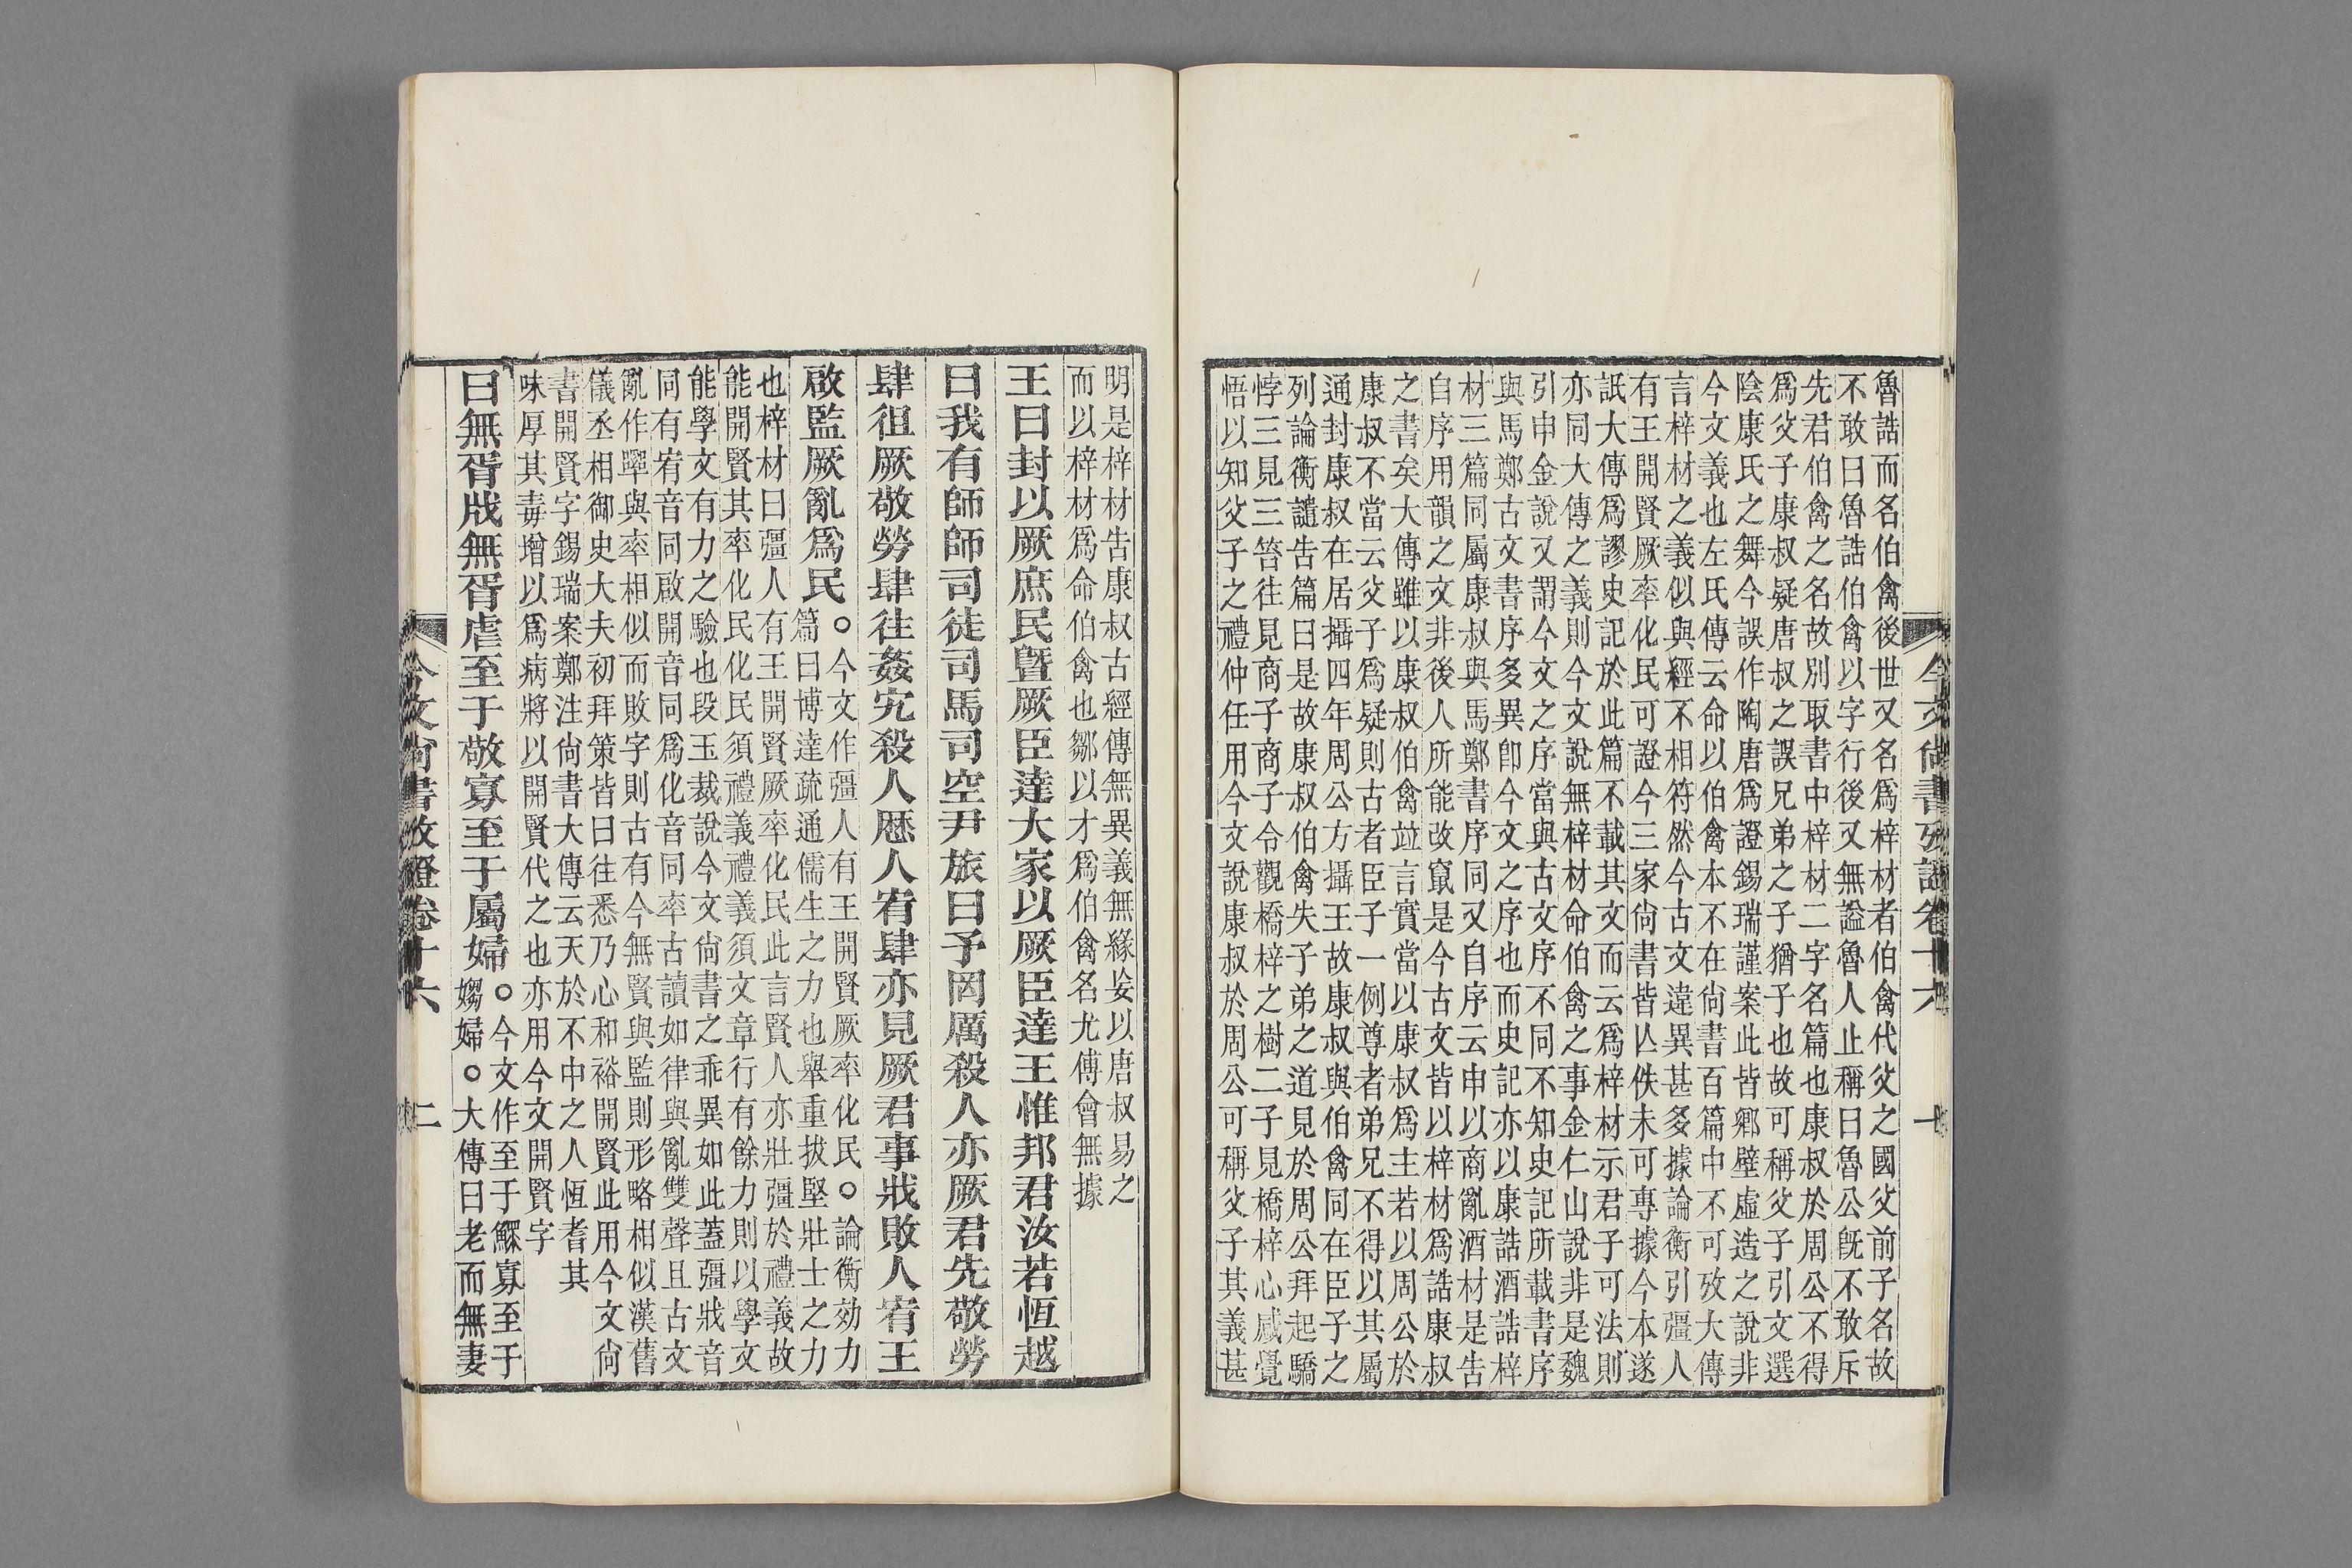 魯誥而名伯禽後世又名爲梓材者伯禽代父之國父前子名故
不敢曰魯誥伯禽以字行後又無謚魯人止稱曰魯公旣不敢斥
先君伯禽之名故別取書中梓材二字名篇也康叔於周公不得
爲父子康叔疑唐叔之誤兄弟之子猶子也故可稱父子引文選
陰康氏之舞今誤作陶唐爲證錫瑞謹案此皆鄉壁虛造之說非
今文義也左氏傳云命以伯禽本不在尙書百篇中不可攷大傳
言梓材之義似與經不相符然今古文違異甚多據論衡引彊人
有王開賢厥率化民可證今三家尙書皆亾佚未可專據今本遂
詆大傳爲謬史記於此篇不載其文而云爲梓材示君子可法則
亦同大傳之義則今文說無梓材命伯禽之事金仁山說非是魏
引申金說又謂今文之序當與古文序不同不知史記所載書序
與馬鄭古文書序多異卽今文之序也而史記亦以康誥酒誥梓
材三篇同屬康叔與馬鄭書序同又自序云申以商亂酒材是告
自序用韻之文非後人所能改竄是今古文皆以梓材爲誥康叔
之書矣大傳雖以康叔伯禽竝言實當以康叔爲主若以周公於
康叔不當云父子爲疑則古者臣子一例尊者弟兄不得以其屬
通封康叔在居攝四年周公方攝王故康叔與伯禽同在臣子之
列論衡譴告篇曰是故康叔伯禽失子弟之道見於周公拜起驕
悖三見三笞往見商子商子令觀橋梓之樹二子見橋梓心感覺
悟以知父子之禮仲任用今文說康叔於周公可稱父子其義甚
今文尙書攷證卷十六
明是梓材告康叔古經傳無異義無緣妄以唐叔易之
而以梓材爲命伯禽也鄒以才爲伯禽名尤傅會無據
王曰封以厥庶民曁厥臣達大家以厥臣達王惟邦君汝若恆越
曰我有師師司徒司馬司空尹旅曰予罔厲殺人亦厥君先敬勞
肆徂厥敬勞肆往姦宄殺人歷人宥肆亦見厥君事戕敗人宥王
啟監厥亂爲民。今文作彊人有王開賢厥率化民。論衡効力
篇曰博達疏通儒生之力也舉重拔堅壯士之力
也梓材曰彊人有王開賢厥率化民此言賢人亦壯彊於禮義故
能開賢其率化民化民須禮義禮義須文章行有餘力則以學文
能學文有力之驗也段玉裁說今文尙書之乖異如此蓋彊戕音
同有宥音同啟開音同爲化音同率古讀如律與亂雙聲且古文
亂作𤔔與率相似而敗字則古有今無賢與監則形略相似漢舊
儀丞相御史大夫初拜策皆曰往悉乃心和裕開賢此用今文尙
書開賢字錫瑞案鄭注尙書大傳云天於不中之人恆耆其
味厚其毒增以爲病將以開賢代之也亦用今文開賢字
曰無胥戕無胥虐至于敬寡至于屬婦。今文作至于鰥寡至于
媰婦。大傳曰老而無妻
今文尙書攷證卷十六
二